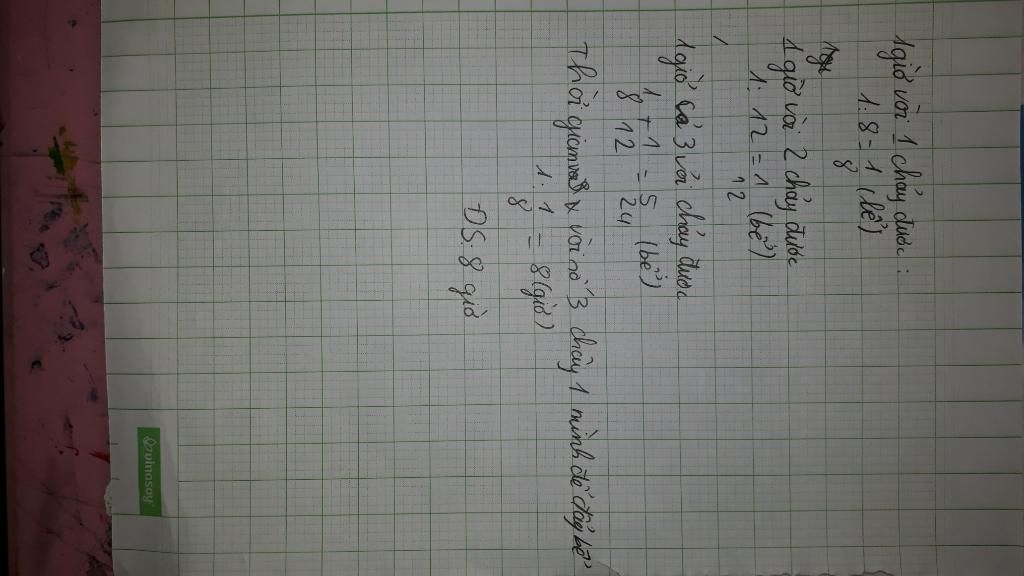 1 giờ vòi 1 chảy được :
1 : 8 = 1/8 (bể)
1 giờ vòi 2 chảy được
1 : 12 = 1/12 (bể)
1 giờ cả 3 vòi chảy được
1/8 + 1/12 = 5/24 (bể)
Thời gian vòi số 3 chảy 1 mình để đầy bể
1 : 1/8 = 8 (giờ)
ĐS : 8 giờ
vinasoy